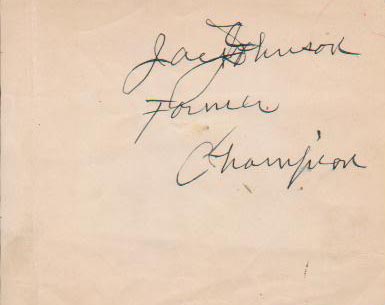 Jack Johnson
Former
Champion